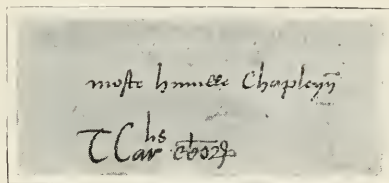 moste humble Chapleyn
T Carlis ebor